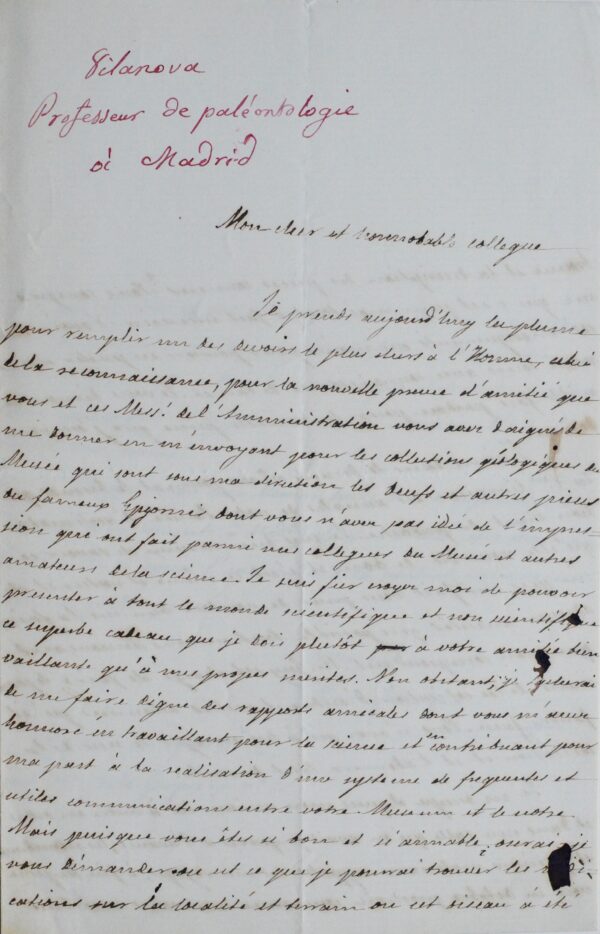 Vilanova
Professeur de paléontologie
à Madrid
Mon cher et honnorable collegue
Je prends aujourd'huy la plume
pour remplir un des devoirs le plus chers à l'Homme, celui
de la reconnaissance, pour la nouvelle preuve d'amitié que
vous et ces Mess.rs de l'Administration vous avez daignés de
me donner en m'envoyant pour les collections géologiques du
Musée qui sont sous ma direction les oeufs et autres pieces
du fameux Epiornis dont vous n'avez pas idée de l'impres-
sion qui ont fait parmi nos collegues du Musée et autres
amateurs de la science. Je suis fier croyez moi de pouvoir
presenter à tout le monde scientifique et non scientifique
ce superbe cadeau que je dois plutôt à votre amitié bien
vaillante qu'à mes propes merites. Non obstant, je
de me faire digne des rapports amicales dont vous m'avez
honnoré en travaillant pour la science et en contribuant pour
ma part à la realisation d'une systeme de frequentes et
utiles communications entre votre Museum et le notre
Mais puisque vous êtes si bon et si aimable, oserai-je
vous démander ou est ce que je pourrai trouver les
cations sur la localité et terrain ou cet oiseau à été